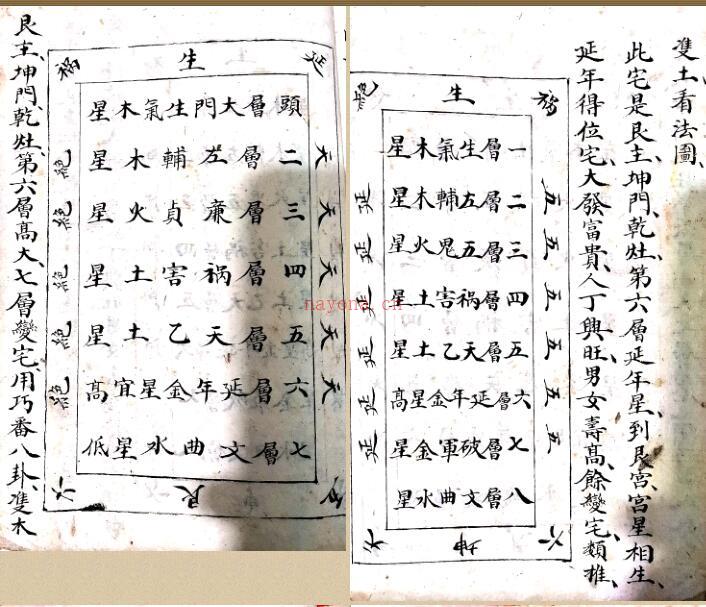 雙土看法圖、
此宅是艮主、坤門、乾灶、第六層延年星、到艮宮、宮星相生、
延年得位宅、大發富貴、人丁興旺、男女壽高、餘變宅、類推、
生
一層生氣木星
二層左輔木星
三層五鬼火星
四層禍害土星
五層天乙土星
六層延年金星高
七層破軍金星
八層文曲水星
五
五
五
五
五
五
延
延
延
延
延
延
六
坤
天
延
生
禍
頭層大門生氣木星
二層左輔木星
三層廉貞火星
四層禍害土星
五層天乙土星
六層延年金星宜高
七層文曲水星低
天
天
天
天
天
絕
絕
絕
絕
絕
艮
六
艮主、坤門、乾灶、第六層高大、七層變宅、用巧番八卦、雙木
nayona.cn